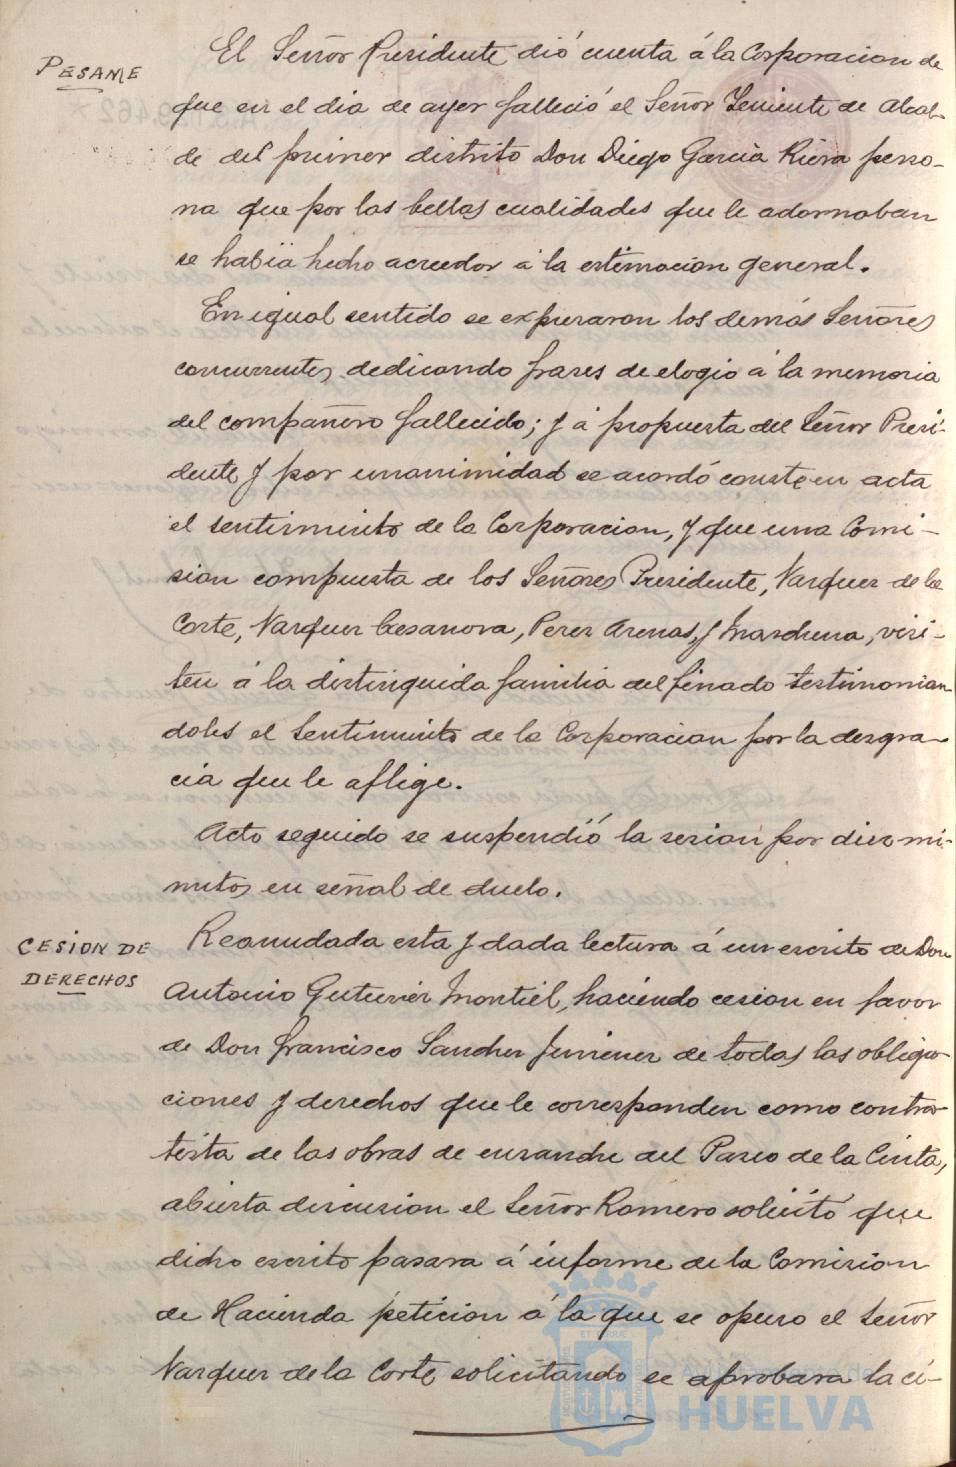 PESAME
El Señor Presidente dió cuenta á la Corporacion de
que en el dia de ayer falleció el Señor Teniente de Alcal-
de del primer distrito Don Diego Garcia Riera perso-
na que por las bellas cualidades que le adornaban
se habia hecho acreedor a la estimacion general.
En igual sentido se expresaron los demás Señores
concurrentes dedicando frases de elogio á la memoria
del compañero fallecido; y á propuesta del Señor Presi-
dente y por unanimidad se acordó conste en acta
el sentimiento de la Corporacion, y que una Comi-
sion compuesta de los Señores Presidente, Vazquez de la
Corte, Vazquez Casanova, Perez Arenas, y Marchena, visi-
ten á la distinguida familia del finado testimonian-
doles el sentimiento de la Corporacion por la desgra-
cia que le aflige.
Acto seguido se suspendió la sesion por diez mi-
nutos en señal de duelo.
CESION DE
DERECHOS
Reanudada esta y dada lectura á un escrito de Don
Antonio Gutierrez Montiel, haciendo cesion en favor
de Don Francisco Sanchez Jimenez de todas las obliga-
ciones y derechos que le corresponden como contra-
tista de las obras de ensanche del Paseo de la Cinta,
abierta discusion el Señor Romero solicitó que
dicho escrito pasara á informe de la Comision
de Hacienda peticion á la que se opuso el Señor
Vazquez de la Corte solicitando se aprobara la ce-
Ayuntamiento de
HUELVA